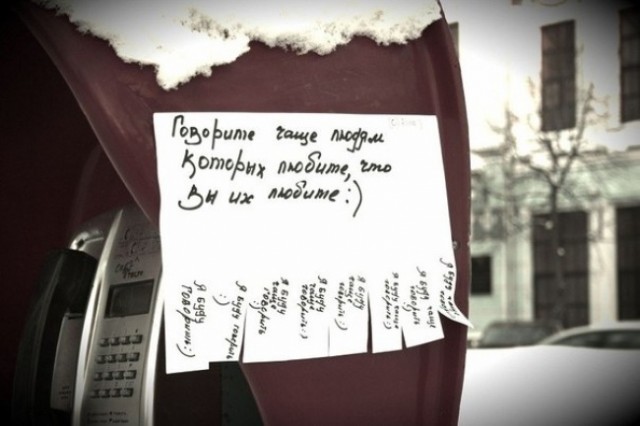 Говорите чаще людям
которых любите, что
Вы их любите:)
я буду
чаще
говорить:)
я буду говорить
:)
я буду
чаще
говорить
я буду
чаще
говорить:)
я буду
чаще
говорить:)
я буду
чаще
говорить:)
я буду чаще
говорить:)
я буду чаще
говорить
я буду